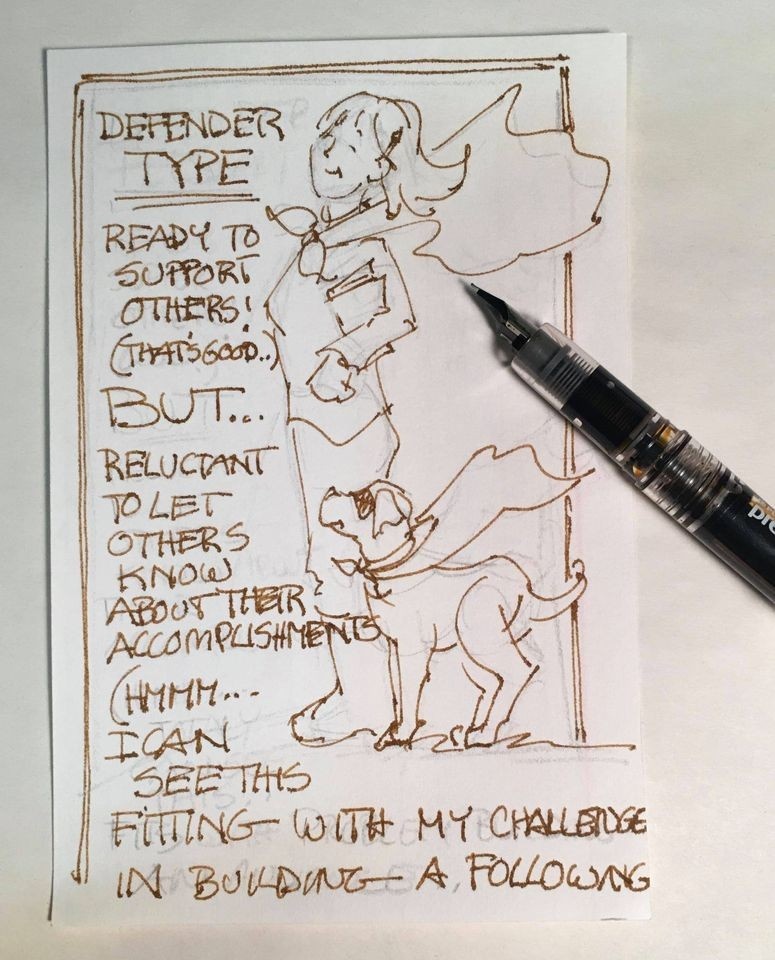 DEFENDER
TYPE
READY TO
SUPPORT
OTHERS!
(THAT'S GOOD..)
BUT...
RELUCTANT
TO LET
OTHERS
KNOW
ABOUT THEIR
ACCOMPLISHMENTS
(HMMM...
I CAN
SEE THIS
FITTING WITH MY CHALLENGE
IN BUILDING A FOLLOWING